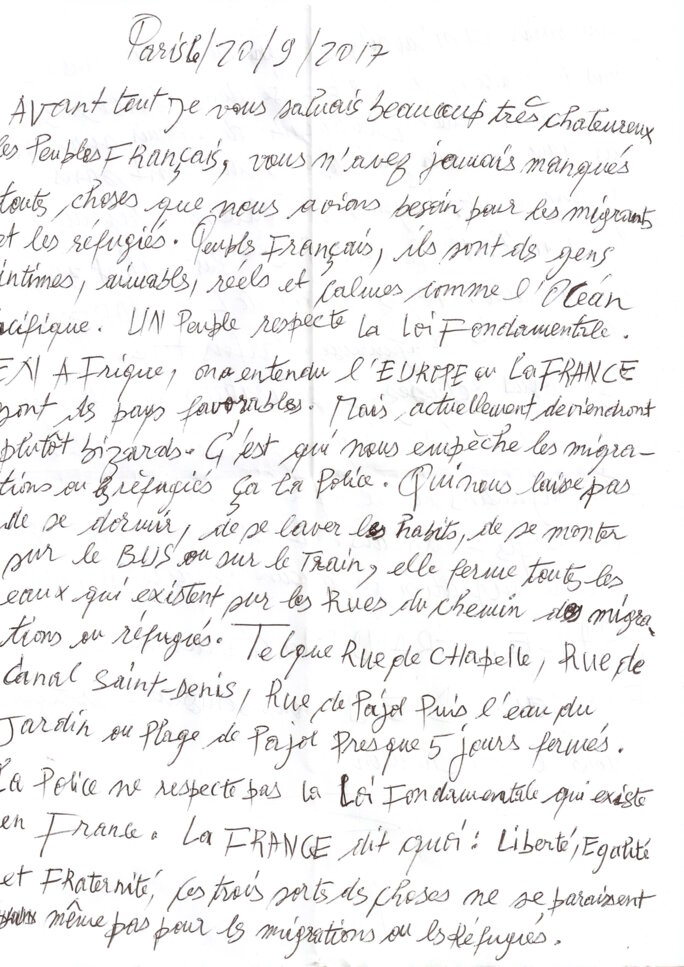 Paris le/20/9/2017
Avant tout Je vous saluais beaucoup très chateureux
les Peuples Français, vous n'avez jamais manqués
toutes choses que nous avions besoin pour les migrants
et les réfugiés. Peuple Français, ils sont des gens
intimes, aimables, réels et calmes comme l'Océan
acifique. UN Peuple respecte la Loi Fondamentale.
EN AFrique, on a entendu l'EUROPE ou La FRANCE
sont les pays favorables. Mais, actuellement deviendront
plutôt bizards. C'est qui nous empèche les migra-
tions ou réfugiés ça La Police. Qui nous laisse pas
de se dormir, de se laver les habits, de se monter
sur le BUS ou sur le Train, elle ferme toutes les
eaux qui existent sur les Rues du chemin des migra-
tions ou réfugiés. Telque Rue de Chapelle, Rue de
Canal Saint-Denis, Rue de Pajol Puis l'eau du
Jardin ou Plage de Pajol Presque 5 jours fermés.
La Police ne respecte pas la Loi Fondamentale qui existe
en France. La FRANCE dit quoi: Liberté, Egalité
et FRaternité, ces trois sorts des choses ne se paraissent
même pas pour les migrations ou les Réfugiés.